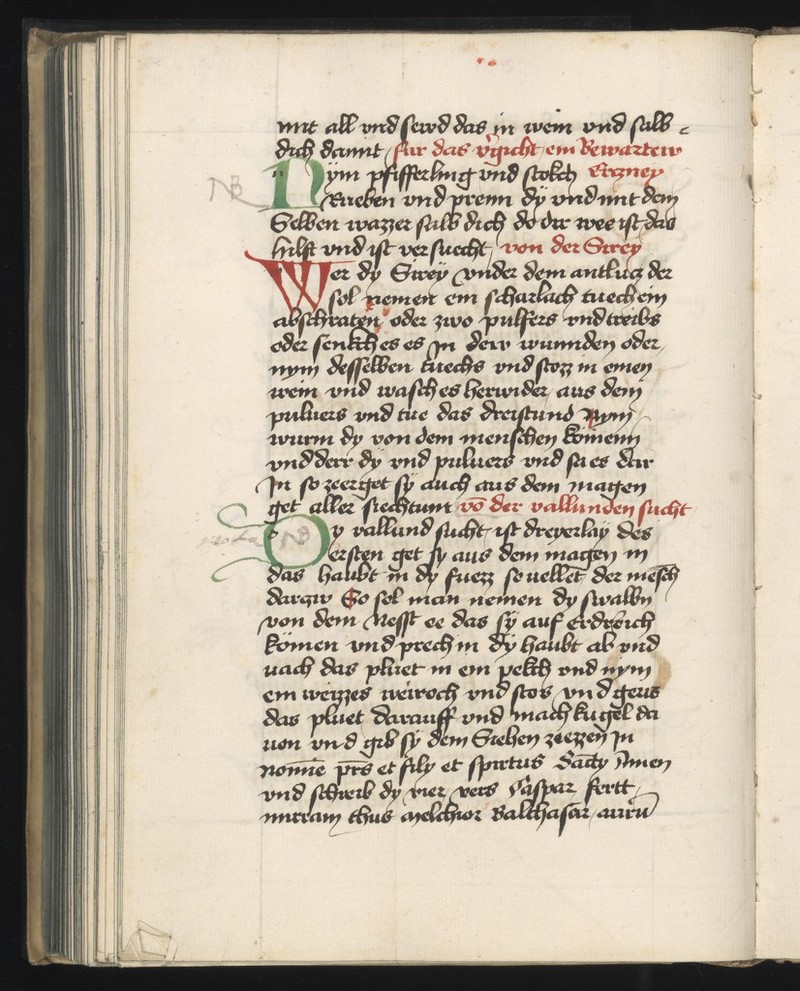 mit all vnd sewd das in wein vnd salb
dich damit fur das v̓gicht ein Bewartew
Nym pfifferling vnd stokch Erczney
Rueben vnd prenn dy vnd mit dem
Selben wazzer salb dich do dir wee ist das
hilft vnd ist versuecht von der Strey
Wer dy Strey vnder dem antlucz der
sol nemen ein scharlach tuech ein
abschraten oder zwo pulfers vnd treibs
oder senkch es es in dew wunnden oder
nym desselben tuechs vnd stozz in einen
wein vnd wasch es herwider aus dem
puluers vnd tue das dreistund Nym
wurm dy von dem menschen kömenn
vnd derr dy vnd puluers vnd sa es dar
In so zeerget sy auch aus dem magen
get aller siechtum vō der vallunden sucht
Dy vallund sucht ist dreyerlay des
ersten get sy aus dem magen in
das haubt in dy fuezz so vellet der mēsch
darzw So sol man nemen dy swalbn
von dem Nesst ee das sy auf Erdreich
kömen vnd prech in dy haubt ab vnd
vach das pluet in ein pekch vnd nym
ein weizzes weiroch vnd stos vnd geus
das pluet darauff vnd mach kugel da
uon vnd gib sy dem Siehen zeezzen In
nomīe pr̄s et fily et spiritus Sācty Amen
vnd schreib dy vier vers Caspar fertt
mirram thus Melchior Balthasar aurū